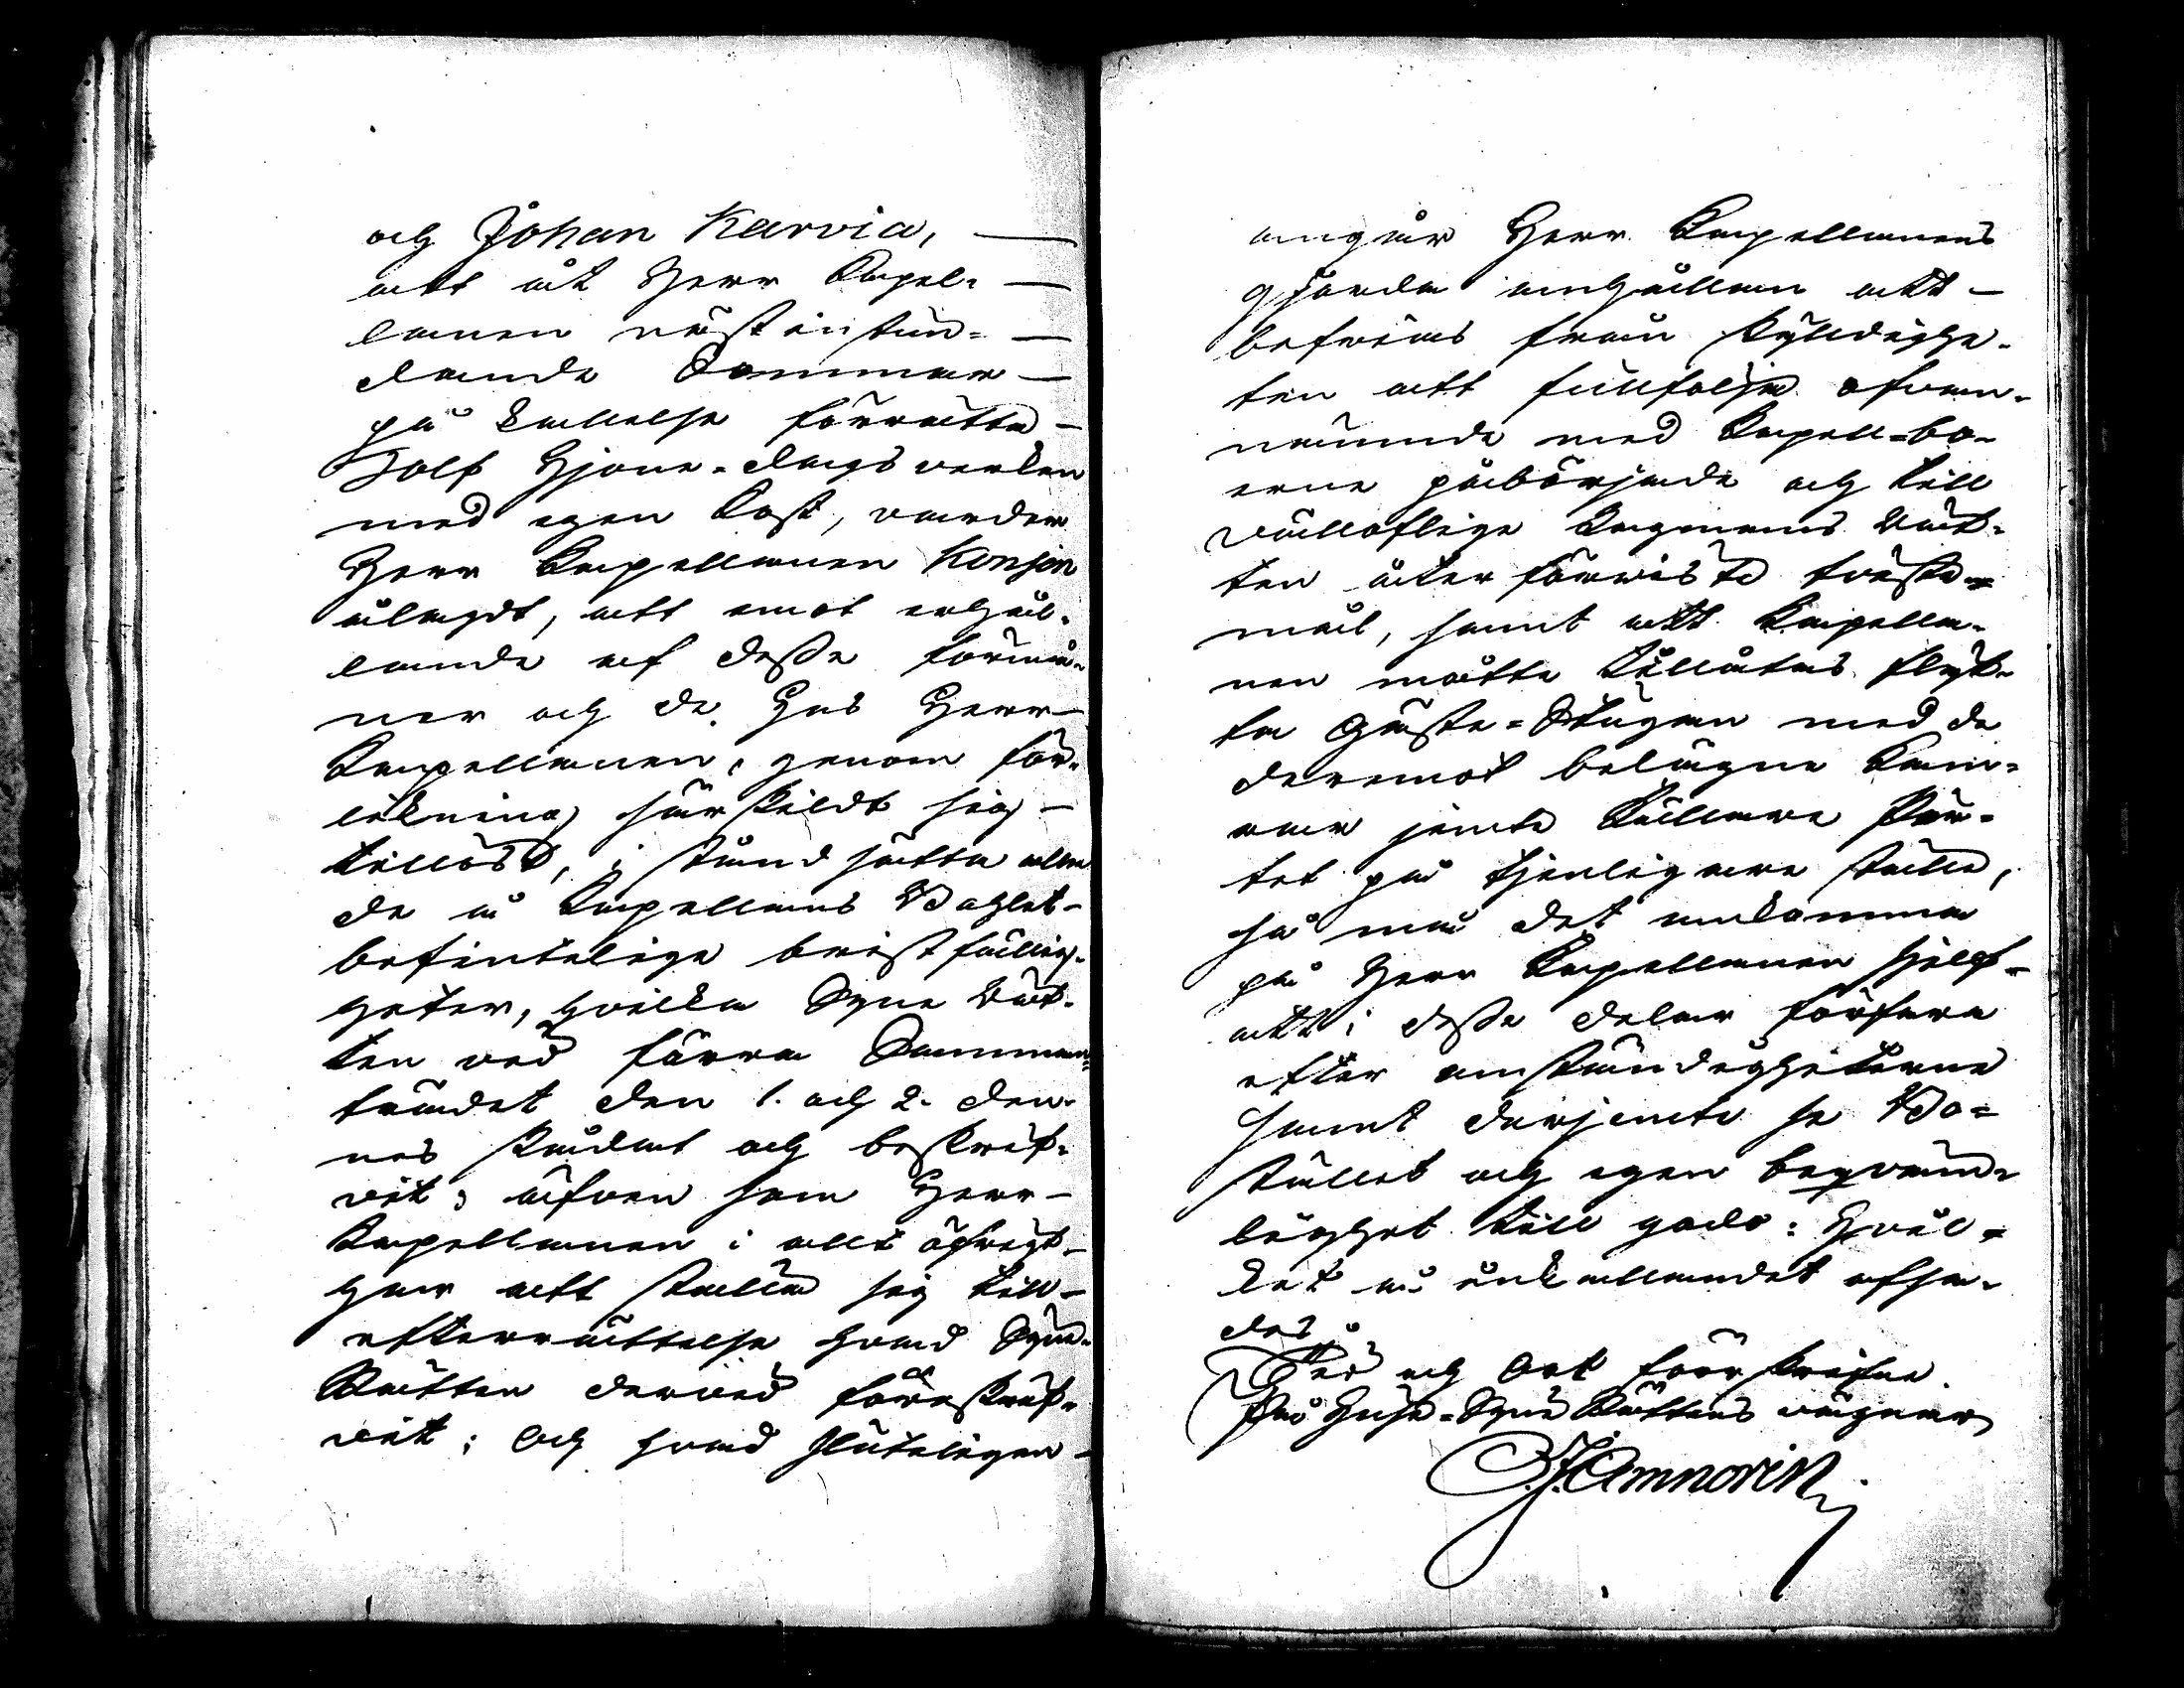 och Johan Karvia,
att åt Herr Capel-
lanen nästinstun-
dande Sommar
på kallelse förrätta
Tolf Hjone-dagsverken
med egen Kost, varder
Herr Capellanen Konsin
ålagdt, att emot erhål-
lande af desse förmå-
ner och de Hus Herr
Capellanen, genom för-
likning särskildt sig
tillöst, i stånd sätta alla
de å Capellans Bohlet
befintelige bristfällig-
heter, hvilka Syne Rät-
ten ved förra Samman-
trädet den 1. och 2. den-
nes skådat och beskrif-
vit; äfven som Herr
Capellanen i allt öfrigt
har att ställa sig till
efterrättelse hvad Syne-
Rätten dervid föreskrif-
vit; Och hvad sluteligen
angår Herr Capellanens
gjorde anhållan att
befrias från skylldighe-
ten att fullfölja ofvan-
nämnde med Capell-bo-
erne påbörjade och till
vällofliga Lagmans Rät-
ten återförviste tviste-
mål, samt att Capella-
nen måtte tillåtas flyt-
ta Gäste-Stugan med de
deremot belägne Kam-
rar jemte Källare Skru-
tet på tjenligare ställe,
så må det ankomma
på Herr Capellanen sjelf
att i desse delar förfara
efter omständigheterne
samt derjemte se Bo-
stället och egen beqväm-
lighet till godo: Hvil-
ket å önkallandet afsa-
des
Tid och Ort förr skrifne.
På Huse-Syne Rättens vägnar
C. J. Amnorin